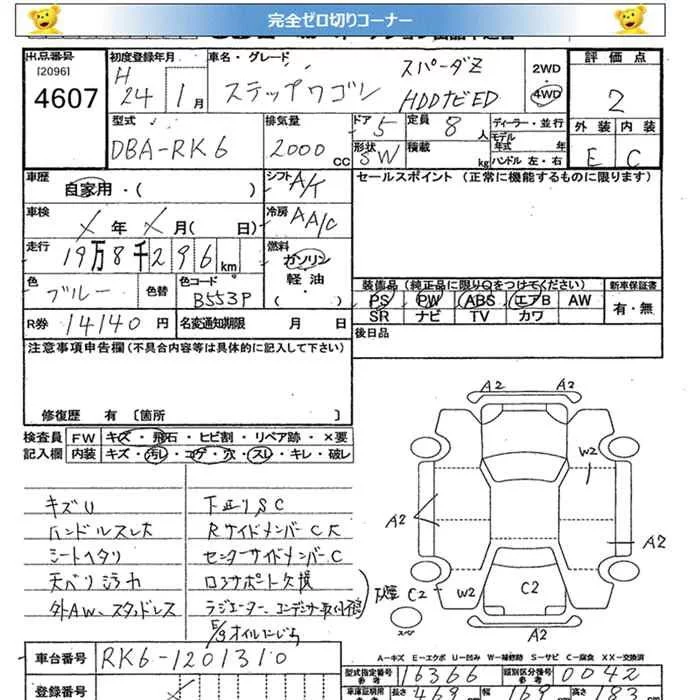 完全ゼロ切りコーナー
出品番号
[2096]
4607
初度登録年月
H
24 1月
車名・グレード
ステップワゴン
スパーダZ
HDDナビED
2WD
4WD
評価点
2
外装 内装
E C
型式
DBA-RK6
排気量
2000 CC
ドア 5
形状 SW
定員 8人
積載 kg
ディーラー・並行
モデル年式 年
ハンドル 左・右
車歴
自家用・( )
シフト A/T
セールスポイント (正常に機能するものに限ります)
車検
X年 X月( 日)
冷房 AA/C
走行
19万8千296km
燃料
ガソリン
軽油
・( )
色
ブルー
色替
色コード
B553P
装備品(純正品に限り○をつけてください)
新車保証書
PS PW ABS エアB AW
有・無
SR ナビ TV カワ
R券 14140円
名変通知期限 月 日
後日品
注意事項申告欄(不具合内容等は具体的に記入して下さい)
修復歴 有 [箇所 ]
検査員 FW キズ・飛石・ヒビ割・リペア跡・×要
記入欄 内装 キズ・汚レ・コゲ・穴・スレ・キレ・破レ
キズU
ハンドルスレ大
シートヘタリ
天ベリジミカ
外AW、スタッドレス
下廻りSC
RサイドメンバーC大
センターサイドメンバーC
ロアサポート欠損
ラジエーター、コンデンサ取付
E/gオイルにじみ
A2 A2
W2
A2
A2
C2 W2
C2
スペア
A2
A-キズ E-エクボ U-凹み W-補修跡 S-サビ C-腐食 XX-交換済
車台番号
RK6-1201310
型式指定番号 参考
16366
類別区分番号 参考
0042
登録番号
車庫証明用 参考
長さ 469cm
幅 169cm
高さ 183cm